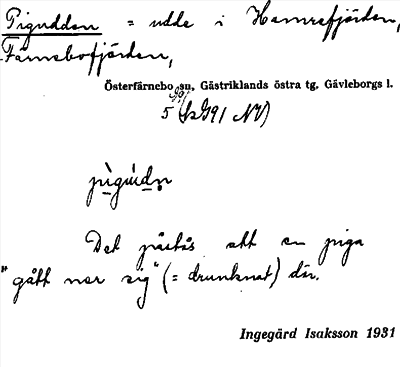 Pigudden = udde i Hemrefjärden,
Färnebofjärden,
Österfärnebo sn, Gästriklands östra tg, Gävleborgs l.
5 (12G91 NV)
pìgúdn
Det påstås att en piga
"gått ner sig" (= drunknat) där.
Ingegärd Isaksson 1931